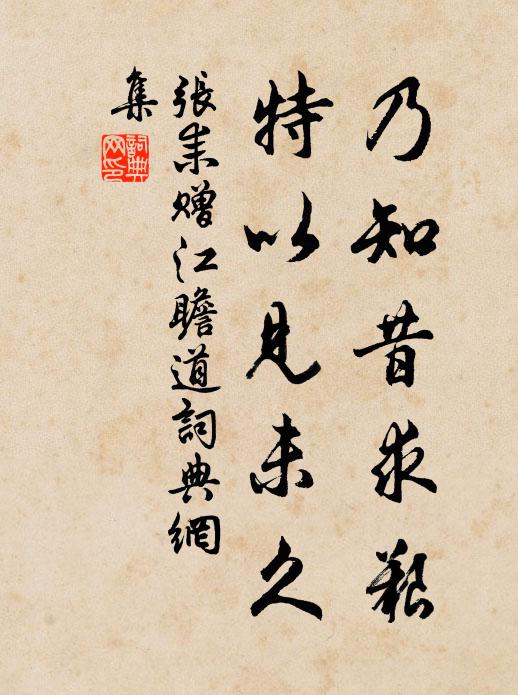 乃知昔求艱
特以見未久
張耒贈江瞻道詞典網
集
詞典
网印